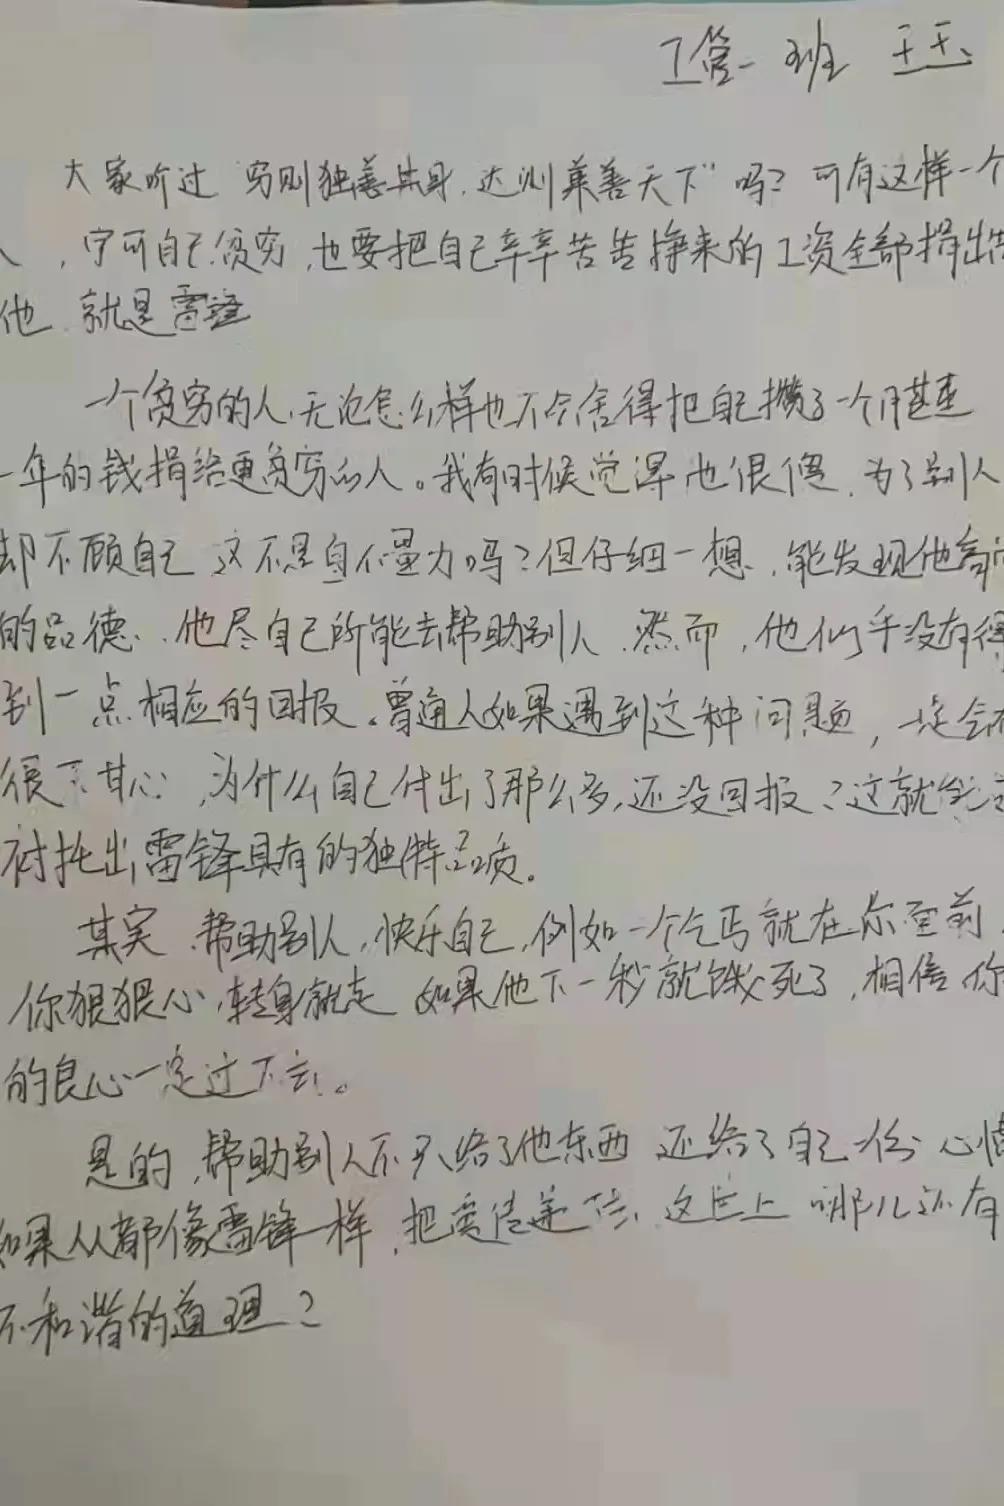 工管一班 王玉
大家听过"穷则独善其身,达则兼善天下"吗?可有这样一个
人,宁可自己贫穷,也要把自己辛辛苦苦挣来的工资全部捐出
他,就是雷锋
一个贫穷的人,无论怎么样也不会舍得把自己攒了一个月甚至
一年的钱捐给更贫穷的人。我有时候觉得他很傻,为了别人
却不顾自己,这不是自不量力吗?但仔细一想,能发现他高尚
的品德,他尽自己所能去帮助别人,然而,他似乎没有得
到一点相应的回报。普通人如果遇到这种问题,一定会
很不甘心,为什么自己付出了那么多,还没回报?这就
衬托出雷锋具有的独特品质。
其实,帮助别人,快乐自己,例如一个乞丐就在你面前,
你狠狠心,转身就走 如果他下一秒就饿死了,相信你
的良心一定过不去。
是的,帮助别人不只给了他东西 还给了自己一份心情
如果人人都像雷锋一样,把爱传递,这世上哪儿还有
不和谐的道理?